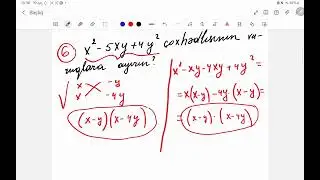 6 x² - 5xy + 4y² çoxhədlisinin vu-
ruqlara ayırın?
x -y
x -4y
(x-y)(x-4y)
x² - xy - 4xy + 4y² =
= x(x-y) - 4y·(x-y) =
= (x-y)·(x-4y)